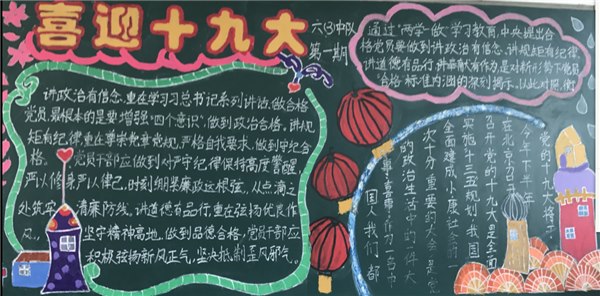 喜迎十九大
六(3)中队
第一期
讲政治有信念,重在学习习总书记系列讲话,做合格
党员,最根本的是要增强"四个意识",做到政治合格。讲规
矩有纪律,重在尊崇党章党规,严格自我要求,做到守纪合
格。党员干部应做到对严守纪律保持高度警醒,
严以修身严以律己,时刻绷紧廉政这根弦,从点滴之
处筑牢清廉防线。讲道德有品行,重在弘扬优良作
风,坚守精神高地,做到品德合格,党员干部应
积极弘扬新风正气,坚决抵制歪风邪气。
通过"两学一做"学习教育,中央提出合
格党员要做到讲政治有信念,讲规矩有纪律,
讲道德有品行,讲奉献有作为,是对新形势下党员
"合格"标准内涵的深刻揭示,以此对照,衡
党的十九大将于
今年下半年
在北京召开
召开党的十九大是全面
实施十三五规划,我国
全面建成小康社会的
次十分重要的大会,是党
的政治生活中的一件大
事,喜事,作为一名中
国人,我们都